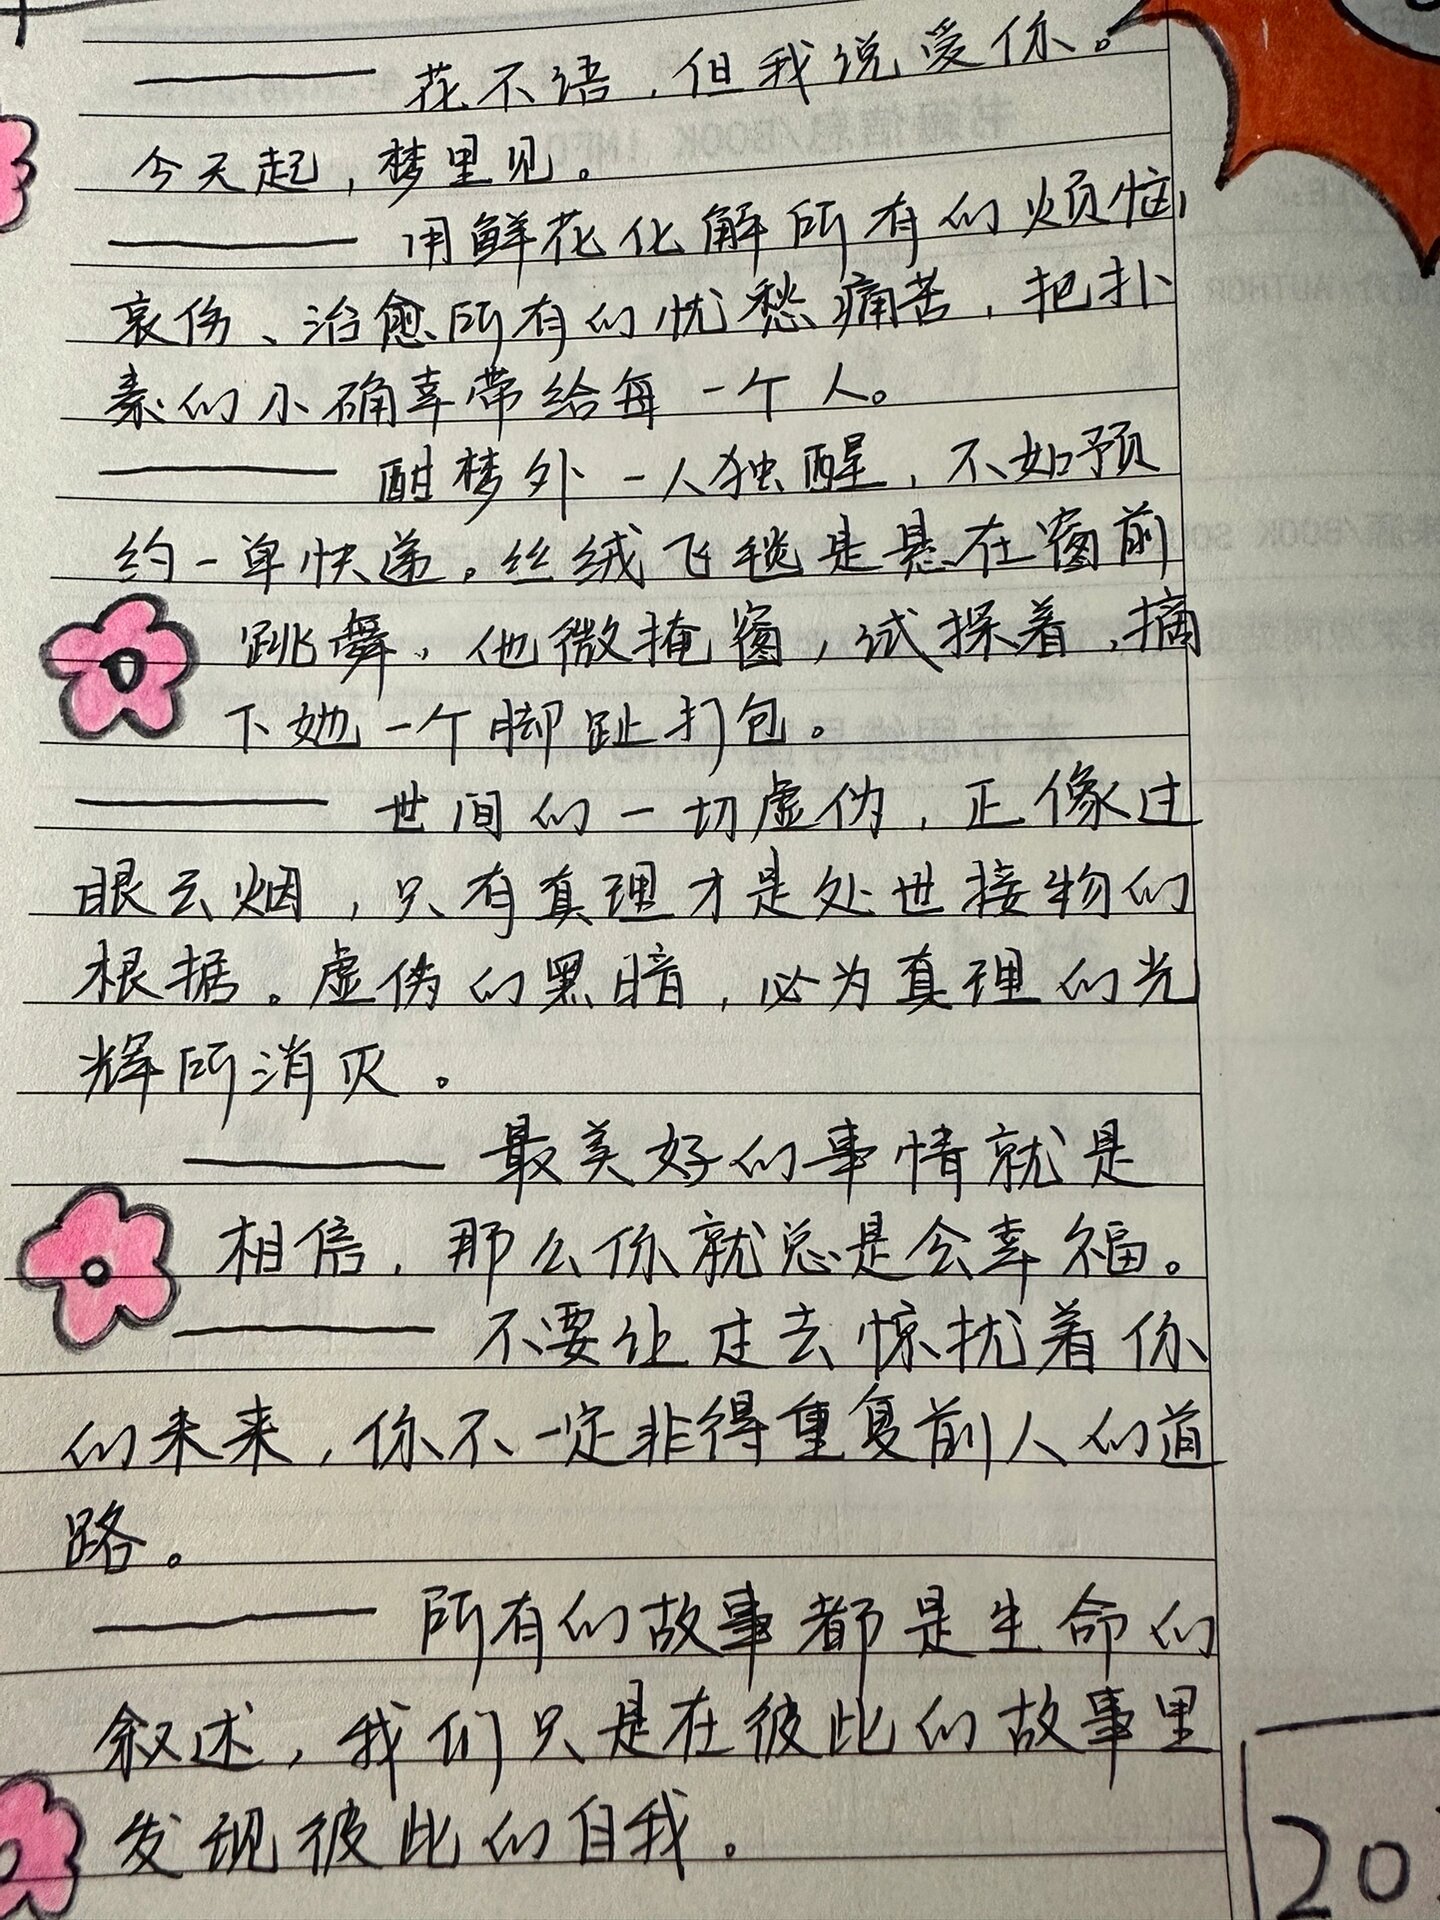 ——— 花不语，但我说爱你。
今天起，梦里见。
——— 用鲜花化解所有的烦恼
哀伤、治愈所有的忧愁痛苦，把扑
素的小确幸带给每一个人。
——— 酣梦外一人独醒，不如预
约一单快递。丝绒飞毯是悬在窗前
跳舞，他微掩窗，试探着，摘
下她一个脚趾打包。
——— 世间的一切虚伪，正像过
眼云烟，只有真理才是处世接物的
根据。虚伪的黑暗，必为真理的光
辉所消灭。
——— 最美好的事情就是
相信，那么你就总是会幸福。
——— 不要让过去惊扰着你
的未来，你不一定非得重复前人的道
路。
——— 所有的故事都是生命的
叙述，我们只是在彼此的故事里
发现彼此的自我。
20